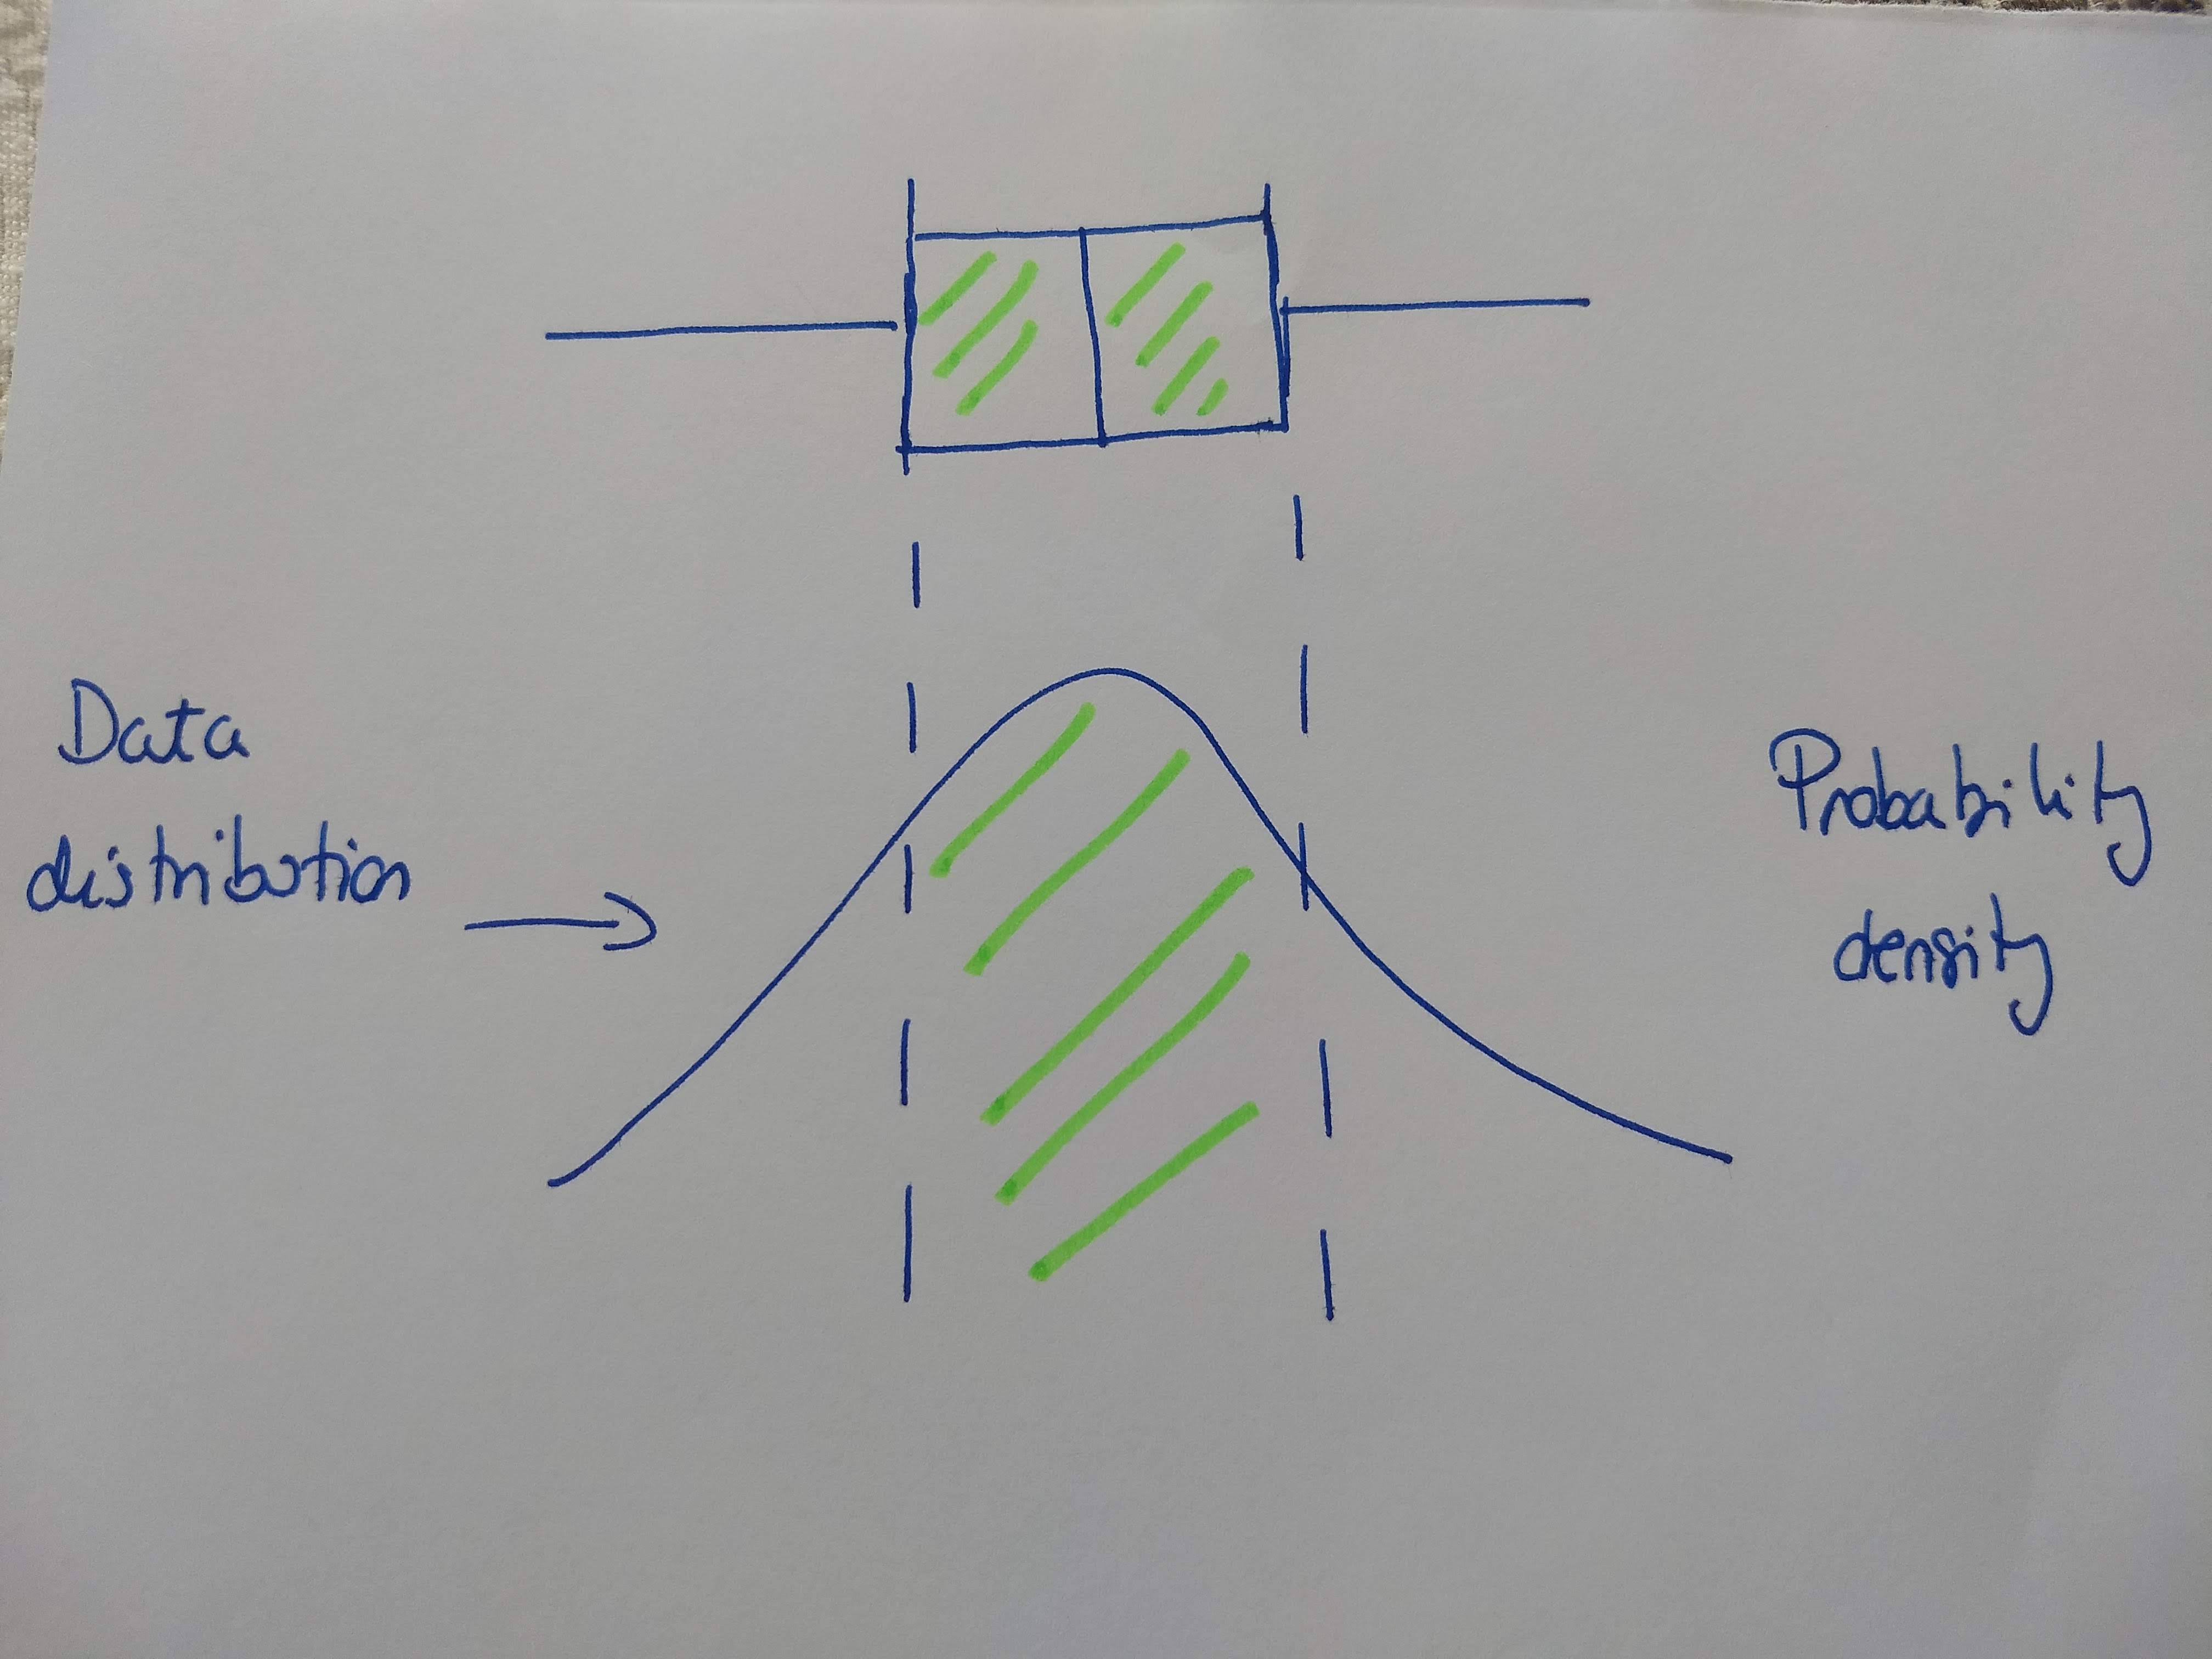 Data
distribution
Probability
density